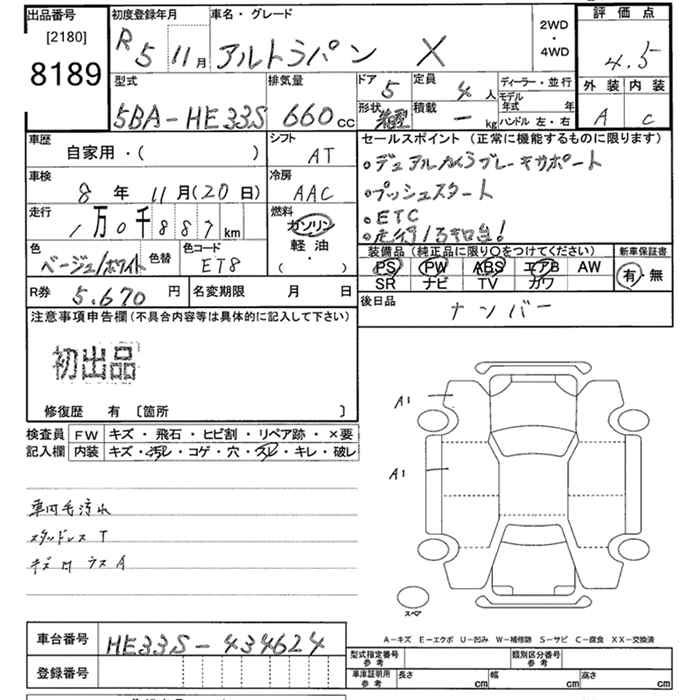 出品番号 初度登録年月 車名・グレード 2WD・4WD 評価点
[2180] 8189 R5 11月 アルトラパン X 4.5
型式 排気量 ドア 5 定員 4人 ディーラー・並行 外装 内装
5BA-HE33S 660cc 形状 積載 - kg モデル年式 年 ハンドル 左・右 A C
車歴 シフト セールスポイント (正常に機能するものに限ります)
自家用・( ) AT ・デュアルカメラブレーキサポート
車検 冷房 ・プッシュスタート
8年 11月(20日) AAC ・ETC
走行 燃料 ・走行1万キロ台!
1万0千887km ガソリン 軽油 ・( )
色 色替 色コード 装備品 (純正品に限り○をつけてください) 新車保証書
ベージュ/ホワイト ET8 PS PW ABS エアB AW 有・無
SR ナビ TV カワ
R券 5,670円 名変期限 月 日 後日品 ナンバー
注意事項申告欄(不具合内容等は具体的に記入して下さい)
初出品
修復歴 有 〔箇所 〕
検査員 FW キズ・飛石・ヒビ割・リペア跡・×要
記入欄 内装 キズ・汚レ・コゲ・穴・スレ・キレ・破レ
車内毛汚れ
スタッドレス T
A1
A1
スペア
A-キズ E-エクボ U-凹み W-補修跡 S-サビ C-腐食 XX-交換済
車台番号 HE33S-434624
登録番号
型式指定番号 参考 類別区分番号 参考
車庫証明用 参考 長さ cm 幅 cm 高さ cm